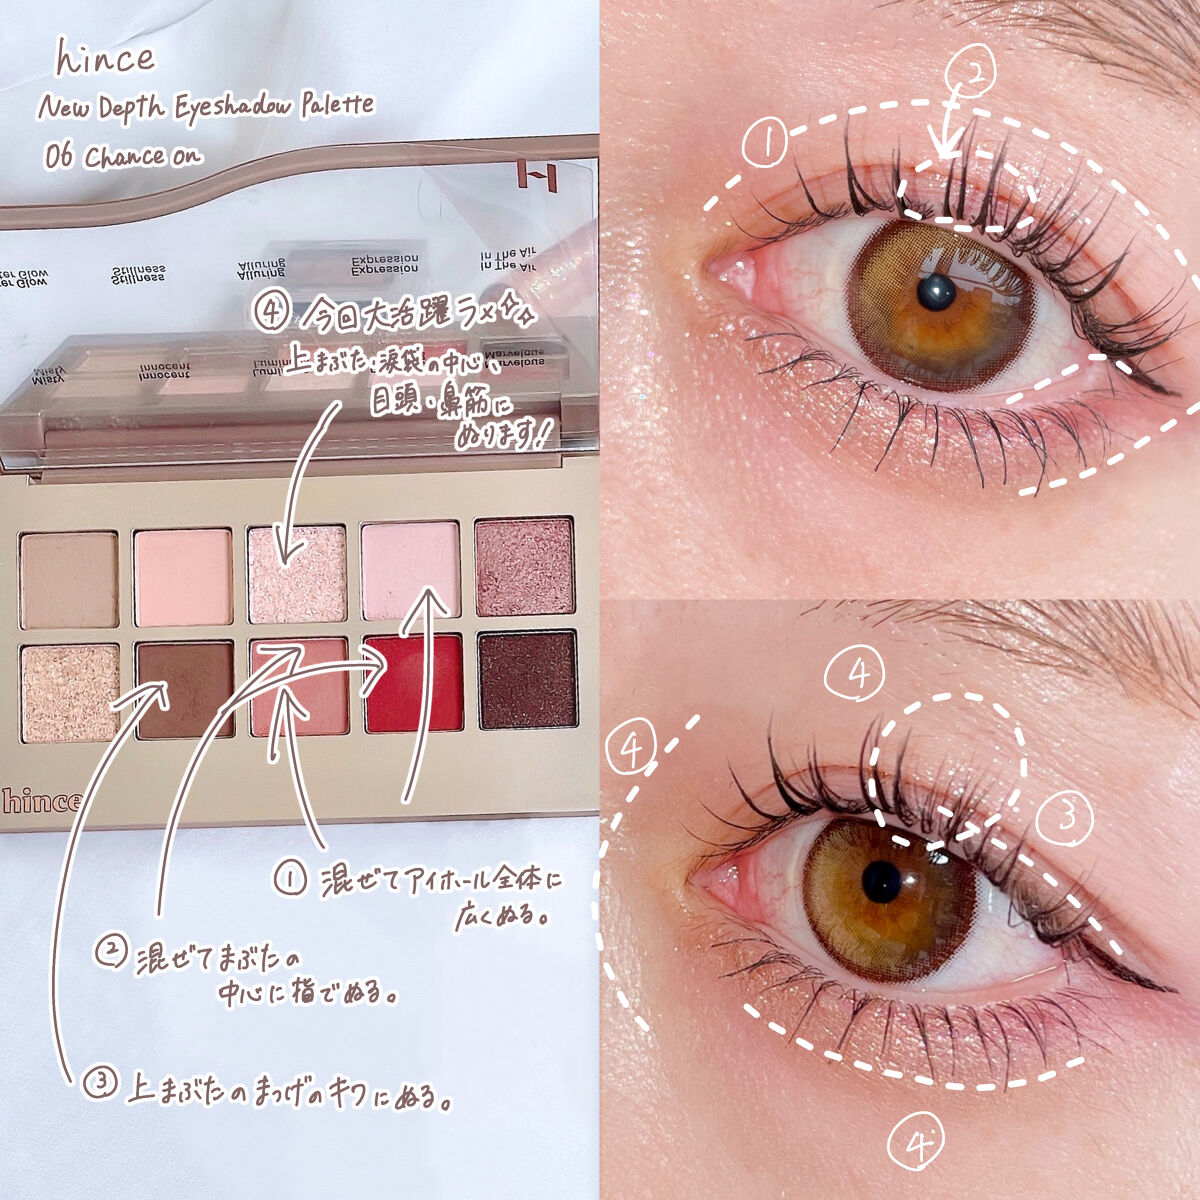 hince
New Depth Eyeshadow Palette
06 Chance on
H
ter Glow
Stillness
Alluring
Expression
In The Air
ter Glow
Stillness
Alluring
Expression
In The Air
④ 今回大活躍ラメ
上まぶた・涙袋の中心、
目頭・鼻筋に
ぬります!
Misty
Innocent
Lumin
Marvelous
Misty
Innocent
Lumin
Marvelous
hince
① 混ぜてアイホール全体に
広くぬる。
② 混ぜてまぶたの
中心に指でぬる。
③ 上まぶたのまつげのキワにぬる。
②
①
④
④
③
④